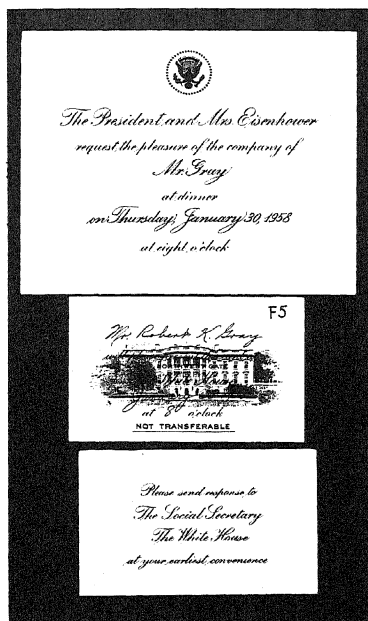 The President and Mrs. Eisenhower
request the pleasure of the company of
Mr. Gray
at dinner
on Thursday, January 30, 1958
at eight o'clock
F5
Mr Robert K. Gray
White House
at 8 o'clock
NOT TRANSFERABLE
Please send response to
The Social Secretary
The White House
at your earliest convenience